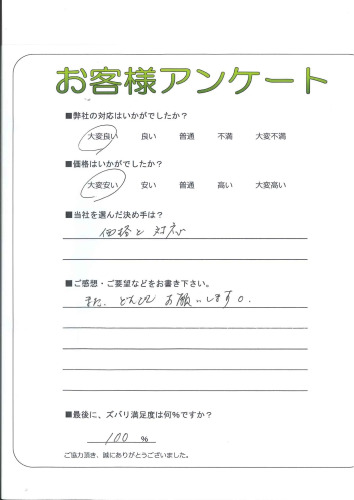 お客様アンケート
■弊社の対応はいかがでしたか？
大変良い 良い 普通 不満 大変不満
■価格はいかがでしたか？
大変安い 安い 普通 高い 大変高い
■当社を選んだ決め手は？
価格と対応
■ご感想・ご要望などをお書き下さい。
また、 お願いします。
■最後に、ズバリ満足度は何%ですか？
100 %
ご協力頂き、誠にありがとうございました。